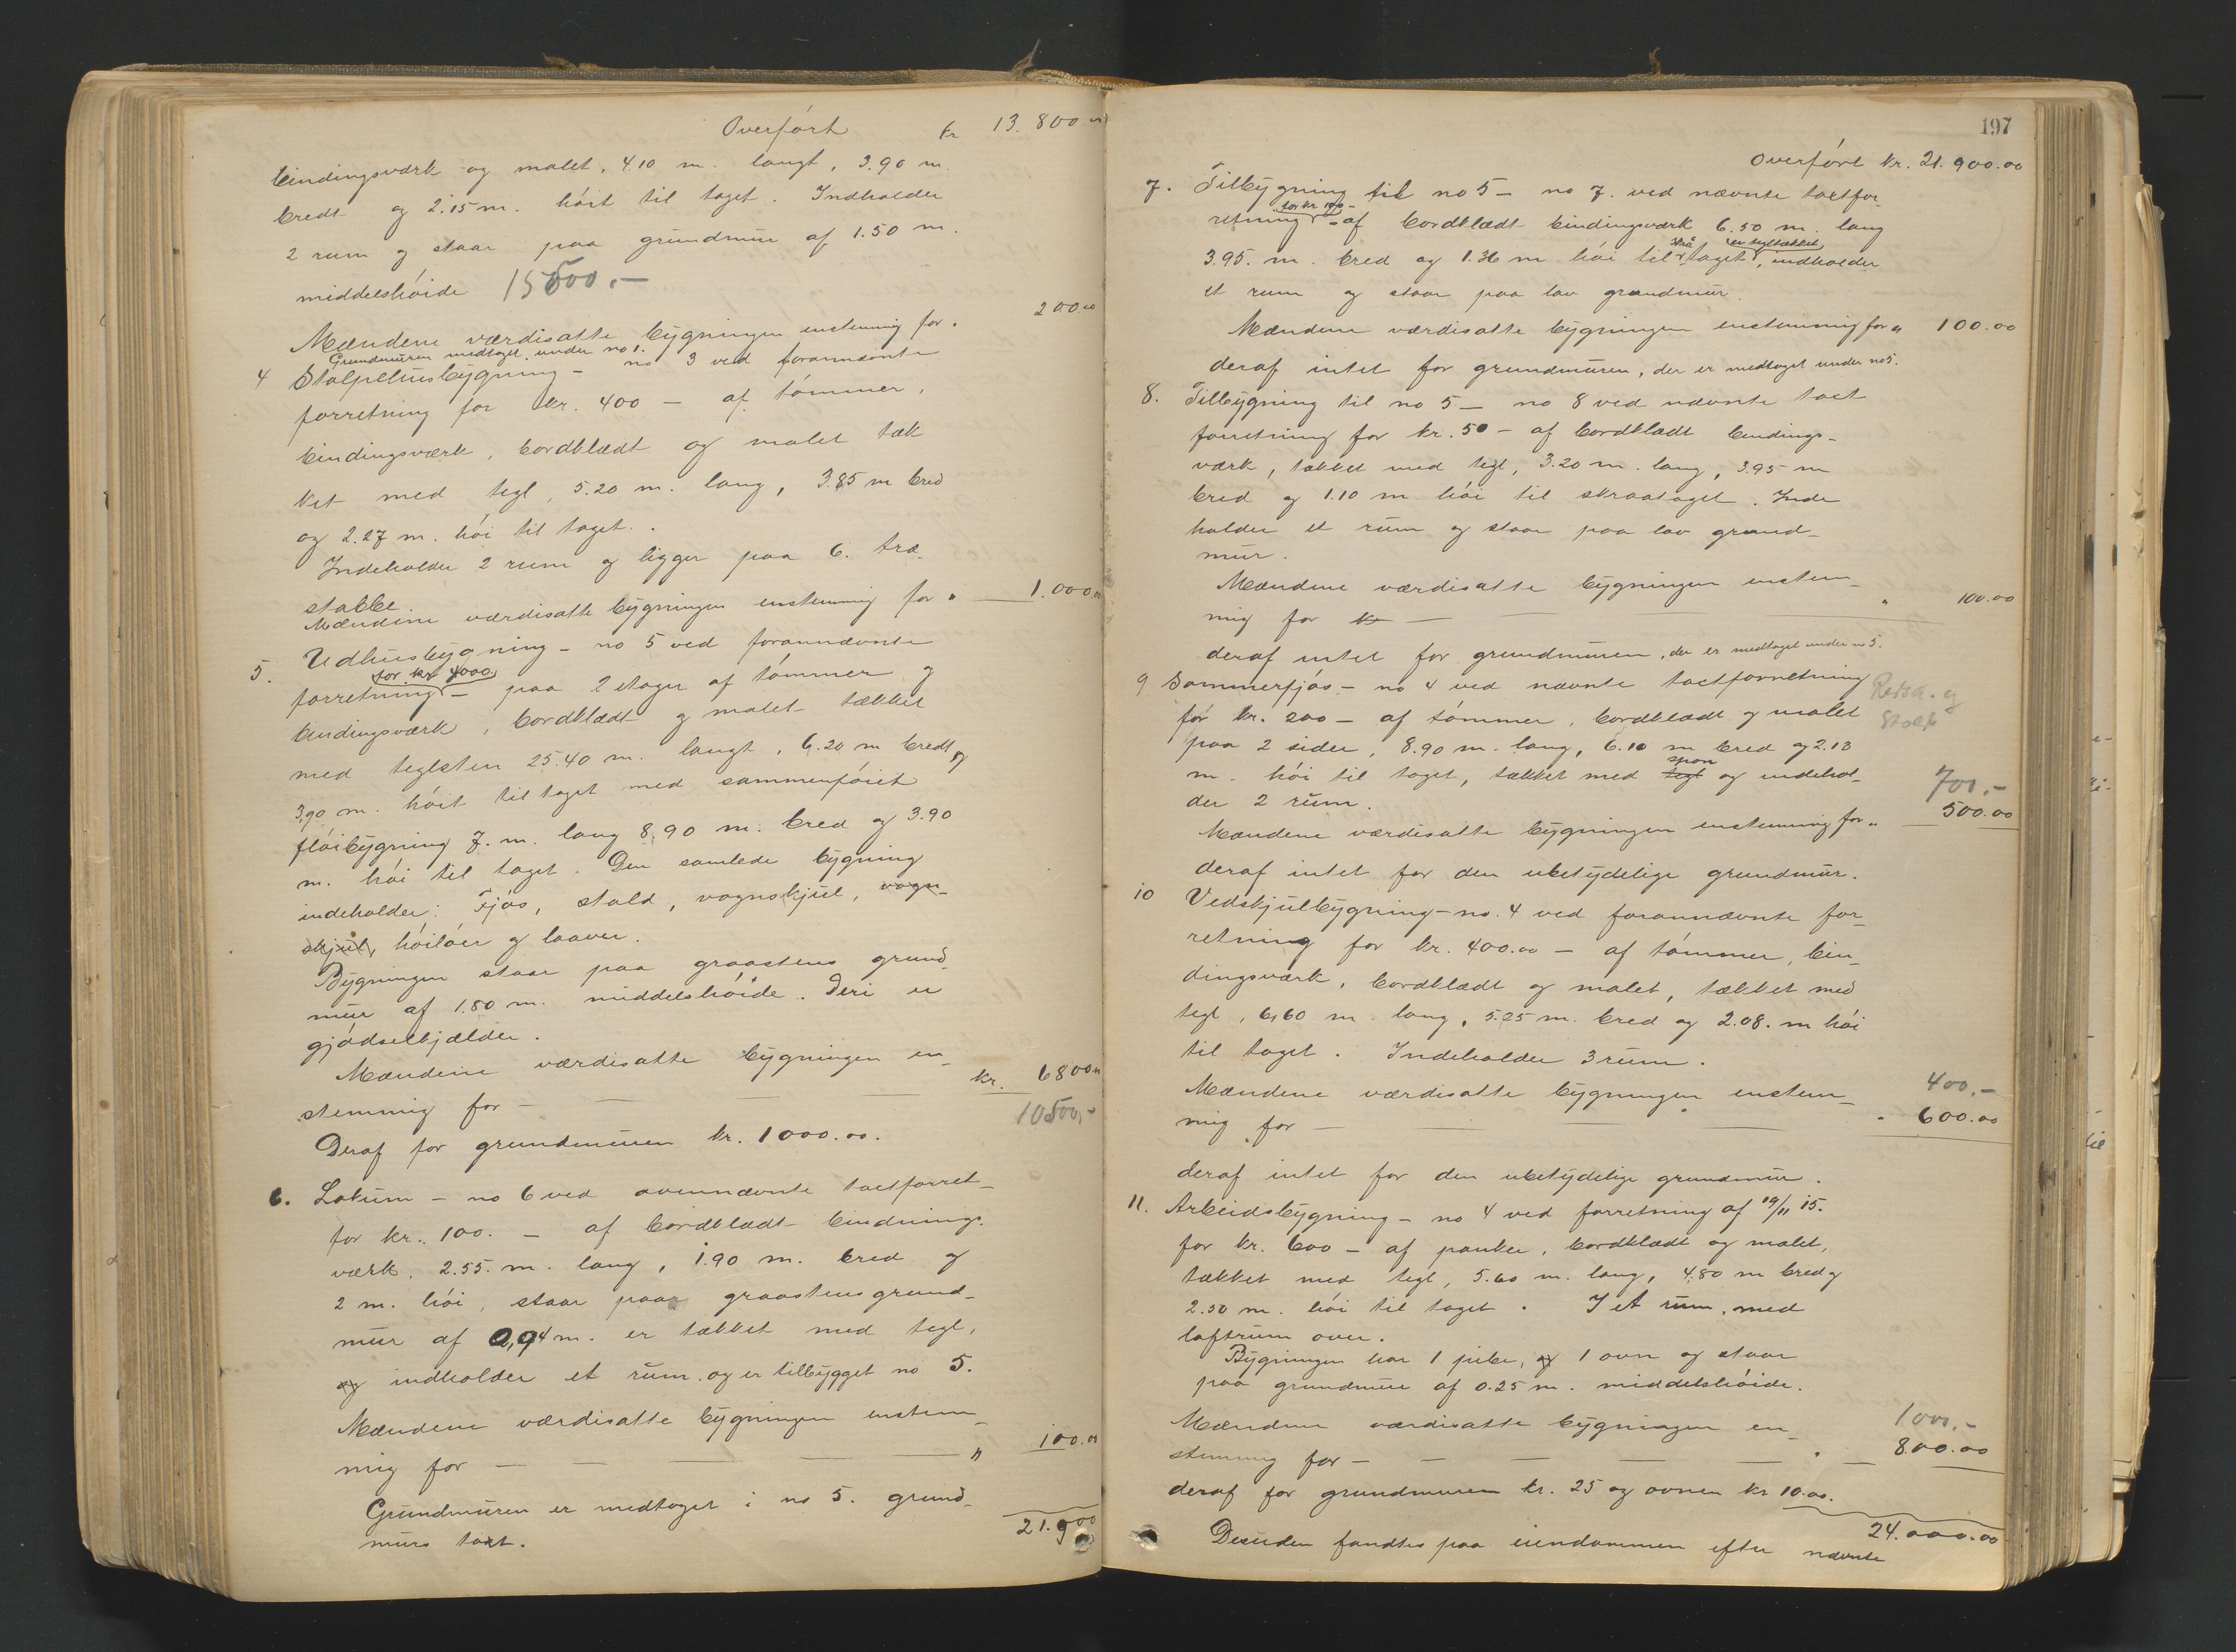 Overført kr 13.800.00
bindingsværk og malet, 4.10 m. langt, 3.90 m.
bredt og 2.15 m. høit til taget. Indholder
2 rum og staar paa grundmur af 1.50 m.
middelshøide 15500.-
Mændene værdisatte bygningen enstemmig for " 200.00
Grundmuren medtaget under no 1.
4 Stolpehusbygning - no 3 ved forannævnte
forretning for kr. 400 - af tømmer,
bindingsværk, bordklædt og malet tæk
ket med tegl, 5.20 m. lang, 3.85 m bred
og 2.27 m. høi til taget.
Indeholder 2 rum og ligger paa 6. træ-
stabbe.
Mændene værdisatte bygningen enstemmig for " 1.000.00
5. Udhusbygning - no 5 ved forannævnte
for kr 4000
forretning - paa 2 etager af tømmer og
bindingsværk, bordklædt og malet tækket
med teglsten 25.40 m. langt, 6.20 m bredt og
3,90 m. høit til taget med sammenføiet
fløibygning 7. m. lang 8,90 m. bred og 3.90
m. høi til taget. Den samlede bygning
indeholder: Fjøs, stald, vognskjul, vogn-
skjul, høiløer og laaver.
Bygningen staar paa graastens grund-
mur af 1.80 m. middelshøide. Deri er
gjødselkjælder.
Mændene værdisatte bygningen en-
stemmig for - kr. 6800.00
10500,-
Deraf for grundmuren kr. 1000.00.
6. Lokum - no 6 ved ovennævnte taxtforret-
for kr. 100. - af bordklædt bindnings-
værk. 2.55. m. lang, 1.90 m. bred og
2 m. høi, staar paa graastensgrund-
mur af 0,94 m. er tækket med tegl,
og indholder et rum og er tilbygget no 5.
Mændene værdisatte bygningen enstem-
mig for - " 100.00
Grundmuren er medtaget i no 5. grund-
murs taxt.
21.900
197
Overført kr. 21.900.00
7. Tilbygning til no 5 - no 7. ved nævnte taxtfor-
for kr 100 -
retning - af bordklædt bindingsværk 6.50 m. lang
skrå er tegltækket
3.95. m. bred og 1.36 m høi til taget, indholder
et rum og staar paa lav grundmur.
Mændene værdisatte bygningen enstemmig for " 100.00
deraf intet for grundmuren, der er medtaget under no 5.
8. Tilbygning til no 5 - no 8 ved nævnte taxt
forretning for kr. 50 - af bordklædt bindings-
værk, tækket med tegl, 3.20 m. lang, 3.95 m
bred og 1.10 m høi til skraataget. Inde
holder et rum og staar paa lav grund-
mur.
Mændene værdisatte bygningen enstem-
mig for kr - " 100.00
deraf intet for grundmuren, der er medtaget under no 5.
9 Sommerfjøs - no 4 ved nævnte taxtforretning
for kr. 200 - af tømmer, bordklædt og malet
paa 2 sider, 8.90 m. lang, 6.10 m bred og 2.13
spon
m. høi til taget, tækket med tegl og indehol-
der 2 rum. 700.-
Mændene værdisatte bygningen enstemmig for " 500.00
deraf intet for den ubetydelige grundmur.
10 Vedskjulbygning - no. 4 ved forannævnte for-
retning for kr. 400.00 - af tømmer, bin-
dingsværk, bordklædt og malet, tækket med
tegl, 6,60 m. lang, 5.25 m. bred og 2.08. m høi
til taget. Indeholder 3 rum.
400,-
Mændene værdisatte bygningen enstem-
mig for - " 600.00
deraf intet for den ubetydelige grundmur.
11. Arbeidsbygning - no 4 ved forretning af 19/11 15.
for kr. 600 - af panker, bordklædt og malet,
tækket med tegl, 5.60 m. lang, 4.80 m bred og
2.50 m. høi til taget. I et rum, med
loftrum over.
Bygningen har 1 pibe, og 1 ovn og staar
paa grundmur af 0.25 m. middelshøide.
1000,-
Mændene værdisatte bygningen en-
stemmig for - " 800.00
deraf for grundmuren kr. 25 og ovnen kr 10.00.
24.000.00
Desuden fandtes paa eiendommen efter nævnte